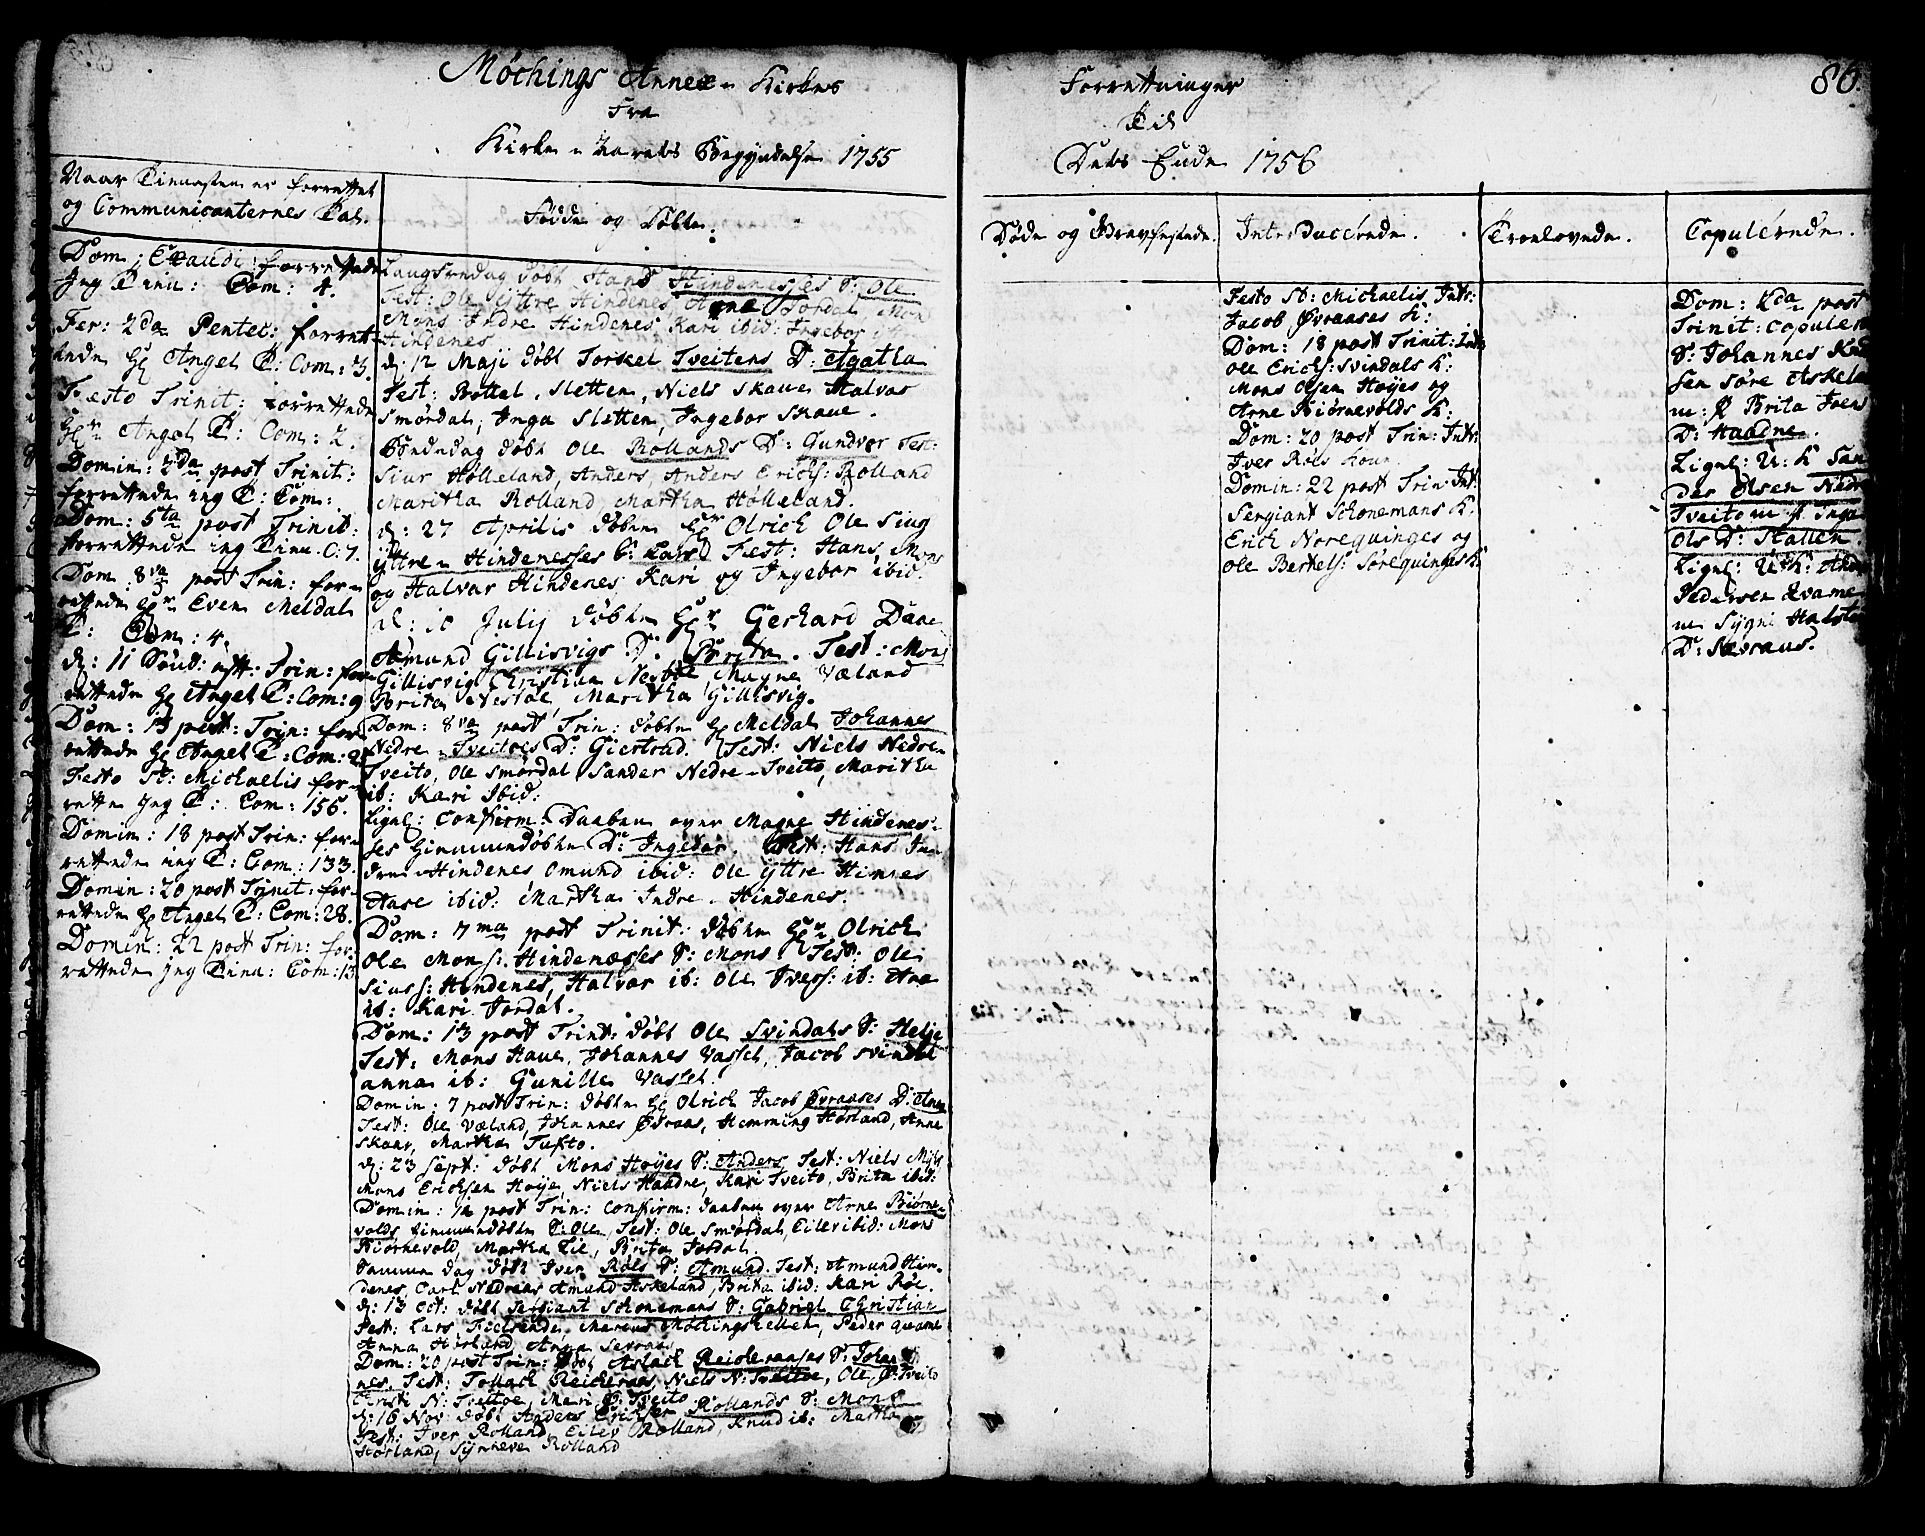 Møchings Annex Kirkes Forrettninger 86.
Fra Til
Kirke Aarets Begyndelse 1755 Dets Ende 1756
Naar Tienesten er forrettet
og Communicanternes Tal.
Dom: Exaudi forrettede
Jeg Tien: Com: 4.
Fer: 2da Pentec: forret-
tede Hr Angel T: Com: 3.
Festo Trinit: forrettede
Hr Angel T: Com: 2.
Domin: 2da post Trinit:
forrettede jeg T: Com:
Dom: 5ta post Trinit:
forrettede jeg Tien. C: 7.
Dom 8va post Trin: for-
rettede Hr Even Meldal
T: Com: 4.
d: 11 Sønd: eft: Trin: for-
rettede Hr Angel T: Com: 9
Dom: 13 post: Trin: for-
rettede Hr Angel T: Com: 2
Festo St: Michaelis for-
rette jeg T: Com: 156.
Domin: 18 post Trin: for-
rettede jeg T: Com: 133.
Domin: 20 post Trinit: for-
rettede Hr Angel T: Com: 28.
Domin: 22 post Trin: for-
rettede jeg Tien: Com: 13
Fødde og Døbte.
Langfredag døbt Hans Hindenesses S: Ole
Test: Ole Yttre Hindenes Arne Jordal Mons
Mons Indre Hindenes, Kari ibid: Ingebor
Hindenes
d: 12 Maji døbt Torkel Tveitens D: Agatha
Test: Bottel Sletten, Niels Skaue Halvar
Smørdal, Inga Sletten, Ingebor Skaue.
Bededag døbt Ole Rollands D: Gundvor Test:
Siur Hølleland, Anders, Anders Erichs: Rolland
Maritha Rolland Martha Hølleland.
d: 27 Aprilis døbte Hr Olrich Ole Siug
Yttre Hindenesses S: Lars Test: Hans, Mons
og Halvar Hindenes Kari og Ingebor ibid.
d: 10 Julij døbte Hr Gerhard Dane
Amund Gillisvigs D: Brita. Test: Mons
Gillisvig Christian Nestøe, Magne Væland
Brita Nestøe, Maritha Gillisvig.
Dom: 8va post Trin: døbte Hr Meldal Johannes
Nedre Tveitoes D: Giertrud. Test: Niels Nedre-
Tveito, Ole Smørdal Sander Nedre Tveito, Maritha
ib: Kari Ibid:
Lignl: Confirm: Daaben over Magne Hindenes-
ses hiemmedøbte D: Ingebor. Test: Hans In-
dre Hindenes Omund ibid: Ole Yttre Himnes
Aase ibid: Martha Indre Hindenes.
Dom: 7ma post Trinit: døbte Hr Olrich
Ole Mons: Hindenæsses S: Mons Test: Ole
Sius: Hindenes, Halvar ib: Ole Ivers: ib: Are
ib: Kari Jordal.
Dom: 13 post Trint: døbt Ole Svindals S: Helje
Test: Mons Haue, Johannes Vassel, Jacob Svindal
anna ib: Gunille Vassel.
Domin: 7 post Trin: døbte Hr Olrich Jacob Øvraases D: Anna
Test: Ole Væland, Johannes Øvraas, Hemming Hørland, Anna
Skaar, Martha Tufto.
d: 23 Sept: døbt Mons Høyes S: Anders Test: Niels
Mons Erichsen Høye, Niels Haadne, Kari Tveito, Brita ibid:
Domin: 12 post Trin: Confirm: daaben over Arne Biørne-
volds hiemmedøbte S: Ole, Test: Ole Smørdal, Eilev ibid: Mons
Biørnevold, Martha Lie, Brita Jordal.
Samme dag døbt Iver Røls S: Amund. Test: Amund Him-
denes, Carl Nedraas Amund Askeland, Brita ibid: Kari Røl.
d: 13 Oct: døbt Sergiant Schonemans S: Gabriel Christian
Test: Lars Marcus Møchingshellen, Peder quame
Anna Hørland, Anna Sevraas
Dom: 20 post Trin: døbt Aslach Reicheraases S: Johan-
nes. Test: Tollach Reicheraas, Niels N: Tveitoe, Ole Ø: Tveito
Kirsti N: Tveitoe, Mari Ø: Tveito
d: 16 Nov: døbt Anders Erichs: Rollands S: Mons
Test: Iver Rolland, Eilev Rolland, Knud ib: Martha
Hørland, Synneve Rolland
Døde og Gravfestede.
Introducerede.
Festo St: Michaelis Intr:
Jacob Øvraases K:
Dom: 18 post Trinit: Intr
Ole Erichs: Svindals K:
Mons Olsen Høyes og
Arne Biørnevolds K:
Dom: 20 post Trin: Intr:
Iver Røls kone
Domin: 22 post Trin: Int:
Sergiant Schonemans K.
Erich Norequinges og
Ole Berkels: Sørequinges K:
Troelovede.
Copulerede.
Dom: 2da post
Trinit: Copuler
S: Johannes Knd
sen Søre Askela
m: P Brita Joens
D: Haadne.
Lignl: U: K San
der Olsen Nedre
Tveito m P Inga
Ols D: Hatten.
Lignl: U: K: And
Pedersen Kvame
m Sygni Halste
D: Sævraas.